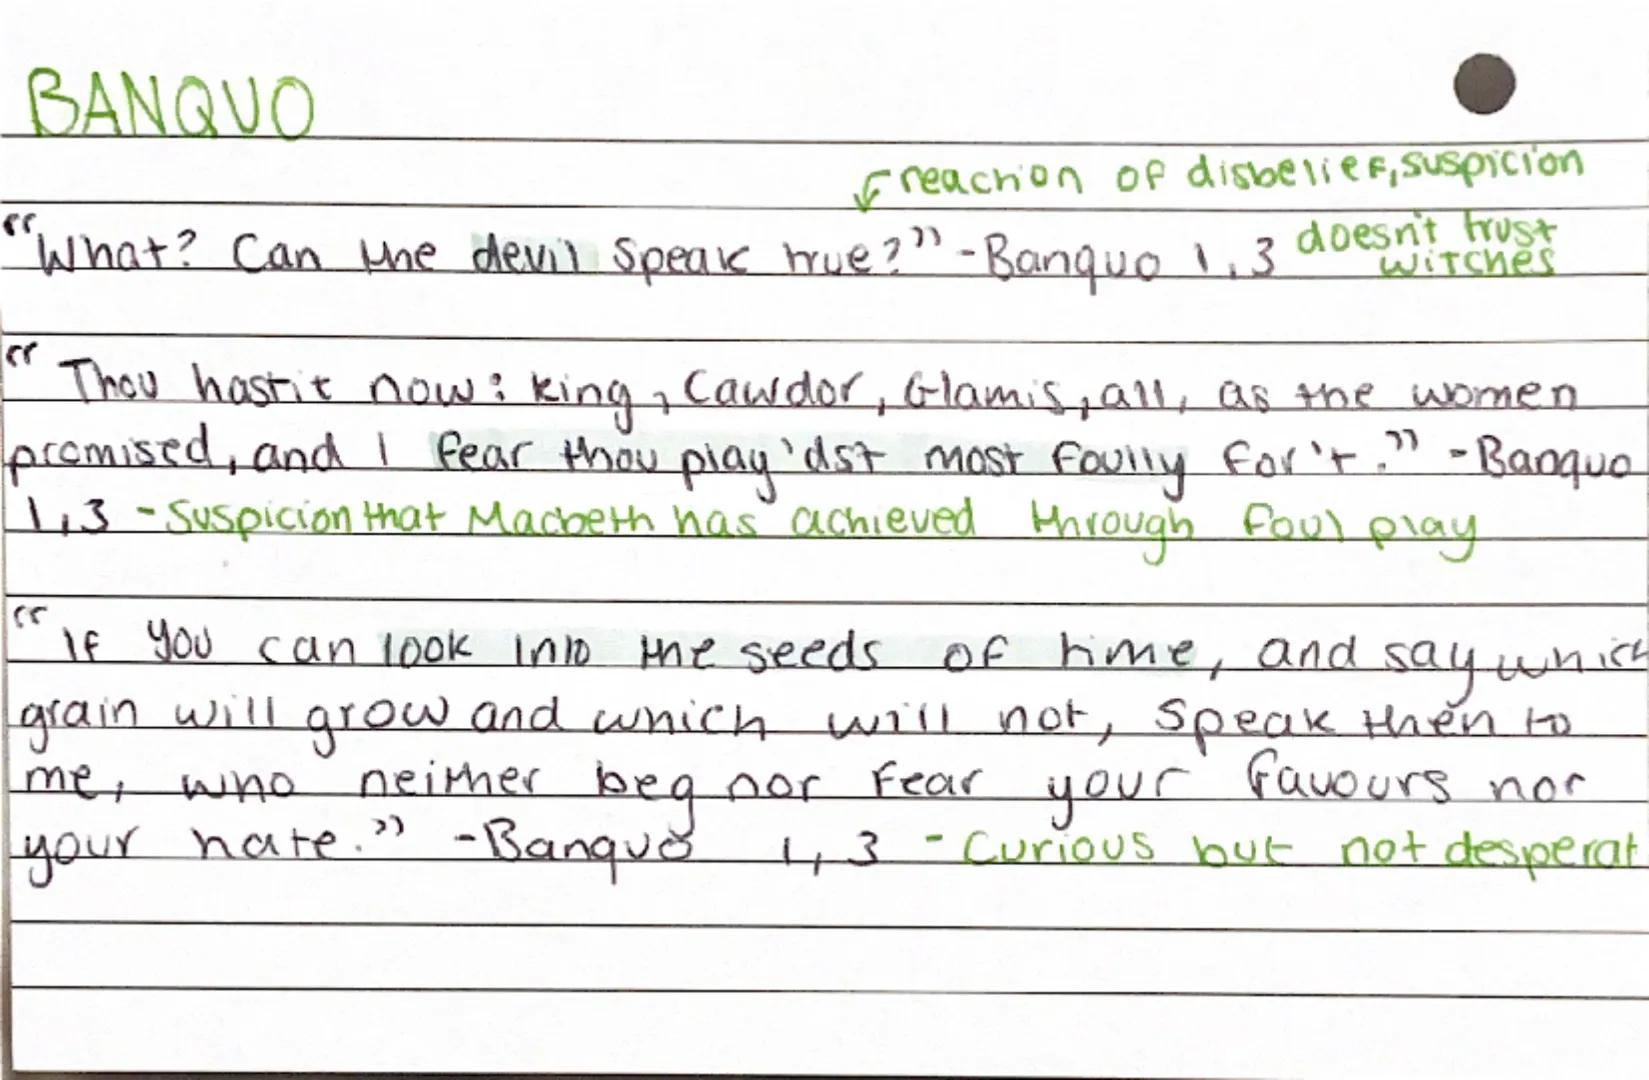 BANQUO
reaction of disbelief, suspicion
"What? Can the devil speak true?" - Banquo 1,3 doesn't trust
witches
"Thou hast it now: king, Cawdor, Glamis, all, as the women
promised, and I fear thou play'dst most foully for't." - Banquo
1,3 - Suspicion that Macbeth has achieved through foul play
"If you can look into the seeds of time, and say which
grain will grow and which will not, speak then to
me, who neither beg nor fear your favours nor
your hate." - Banquo 1,3 - Curious but not desperat